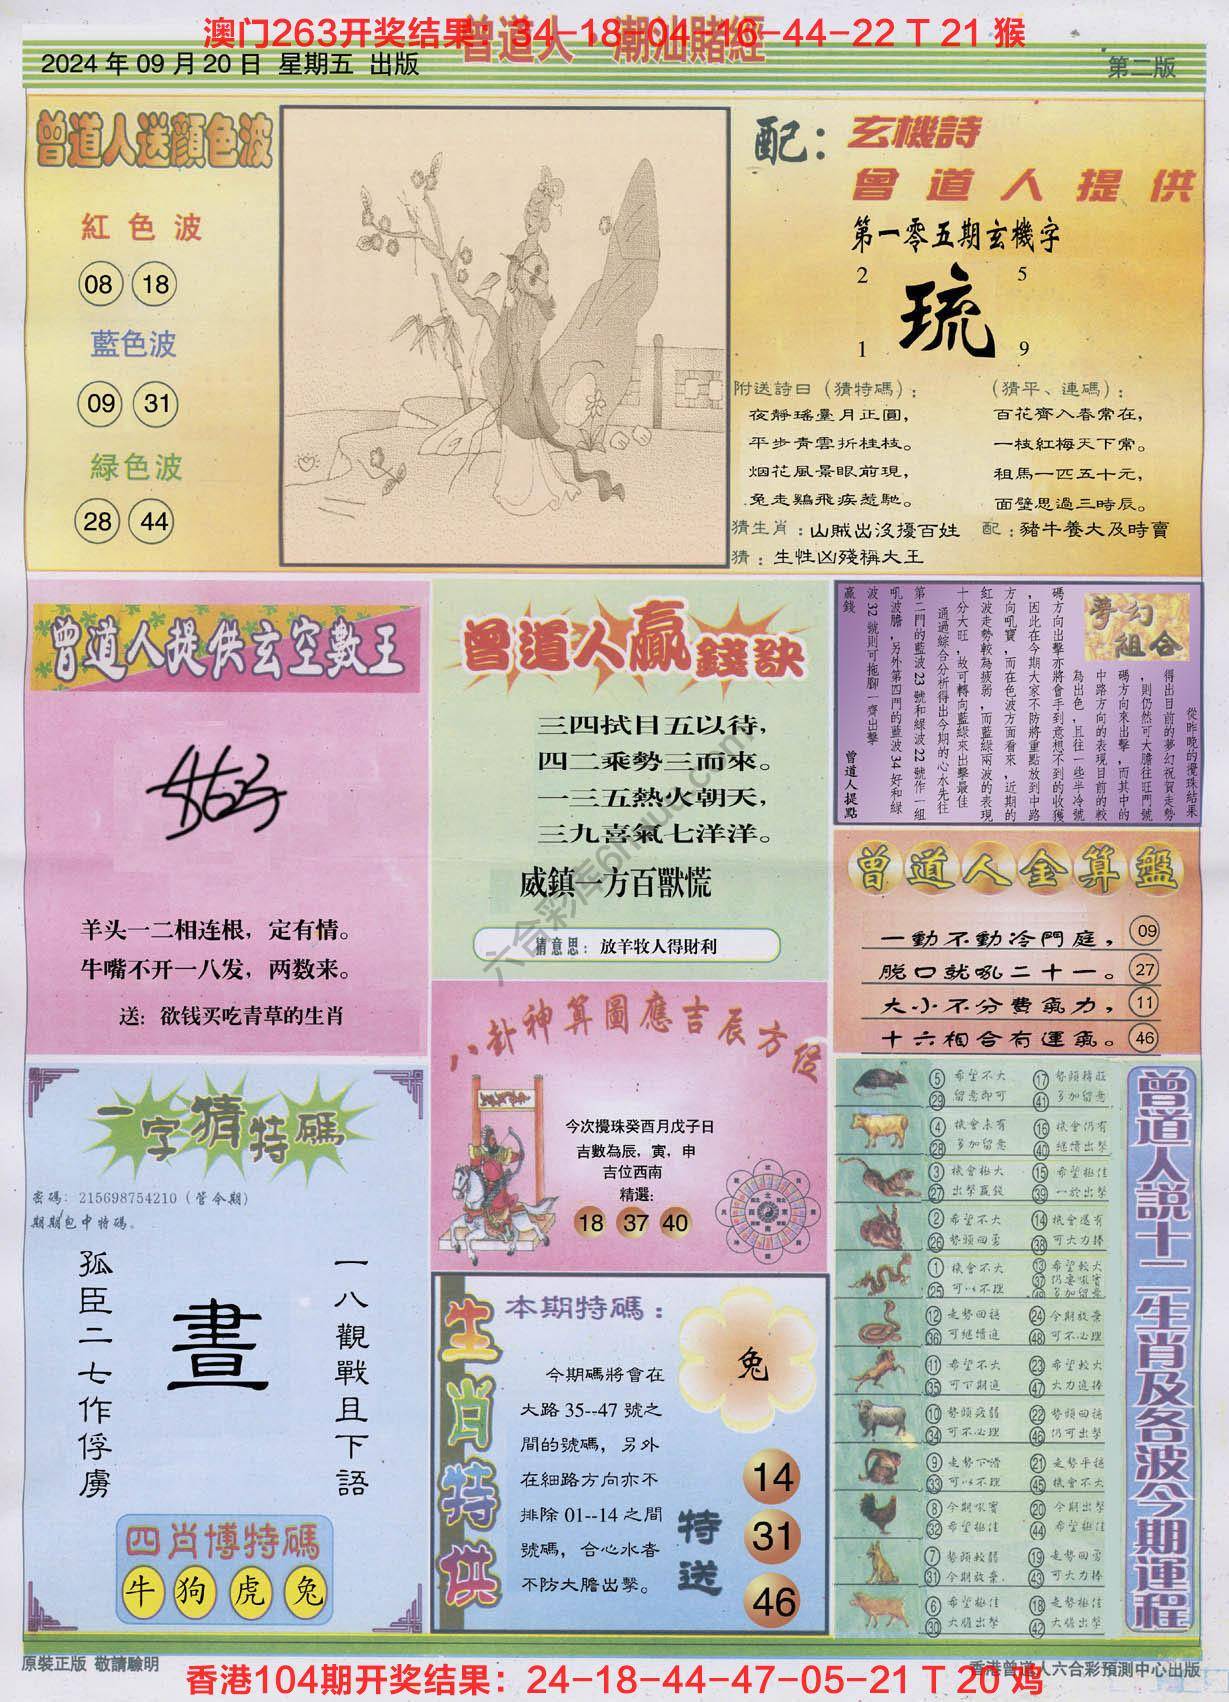 澳门263开奖结果：34-18-04-16-44-22 T 21 猴
曾道人 潮汕賭經
2024 年 09 月 20 日 星期五 出版
第二版
曾道人送顏色波
紅色波
08 18
藍色波
09 31
緑色波
28 44
配：玄機詩
曾道人提供
第一零五期玄機字
2 5
琉
1 9
附送詩曰（猜特碼）：
夜靜瑤臺月正圓，
平步青雲折桂枝。
烟花風景眼前現，
兔走鷄飛疾惹馳。
（猜平、連碼）：
百花齊入春常在，
一枝紅梅天下常。
租馬一匹五十元，
面壁思過三時辰。
猜生肖：山賊出沒擾百姓 配：豬牛養大及時賣
猜：生性凶殘稱大王
曾道人提供玄空數王
羊头一二相连根，定有情。
牛嘴不开一八发，两数来。
送：欲钱买吃青草的生肖
曾道人贏錢訣
三四拭目五以待，
四二乘勢三而來。
一三五熱火朝天，
三九喜氣七洋洋。
威鎮一方百獸慌
猜意思：放羊牧人得財利
夢幻組合
從昨晚的攪珠結果
得出目前的夢幻祝賀走勢
，則仍然可大膽往旺門號
碼方向來出擊，而其中的
中路方向的表現目前的較
為出色，且往一些半冷號
碼方向出擊亦將會手到意想不到的收獲
，因此在今期大家不防將重點放到中路
方向吼寶，而在色波方面看來，近期的
紅波走勢較為疲弱，而藍綠兩波的表現
十分大旺，故可轉向藍綠來出擊最佳
通過綜合分析得出今期的心水先往
第二門的藍波23號和綠波22號作一組
吼波膽，另外第四門的藍波34好和綠
波32號則可拖腳一齊出擊
贏錢
曾道人提點
曾道人金算盤
一動不動冷門庭， 09
脫口就吼二十一。 27
大小不分費氣力， 11
十六相合有運氣。 46
八卦神算圖應吉辰方位
今次攪珠癸酉月戊子日
吉數為辰，寅，申
吉位西南
精選：
18 37 40
一字猜特碼
密碼：215698754210（管令期）
期期包中特碼。
一八觀戰且下語
晝
孤臣二七作俘虜
四肖博特碼
牛 狗 虎 兔
生肖特供
本期特碼：
兔
今期碼將會在
大路 35--47 號之
間的號碼，另外
在細路方向亦不
排除 01--14 之間
號碼，合心水者
不防大膽出擊。
特送
14
31
46
曾道人説十二生肖及各波今期運程
5 希望不大 17 勢頭精旺
29 留意即可 41 多加留意
4 機會未有 16 機會仍有
28 多加留意 40 繼續出擊
3 機會極大 15 希望極佳
27 出擊贏錢 39 一於出擊
2 希望不大 14 機會還有
26 勢頭回勇 38 可大力捧
1 機會不大 13 希望較大
25 可以不理 37 仍要吼寶
49 多加留意
12 走勢回穩 24 今期放棄
36 可繼續追 48 可不必理
11 希望不大 23 希望較大
35 可下期追 47 大力追捧
10 勢頭疲弱 22 勢頭回穩
34 可不必理 46 仍可出擊
9 走勢下滑 21 走勢平穩
33 可以不理 45 機會不大
8 今期吼寶 20 今期出擊
32 希望極佳 44 希望極佳
7 勢頭較弱 19 走勢回勇
31 今期放棄 43 可大力捧
6 希望極佳 18 走勢極佳
30 大膽出擊 42 大膽出擊
六合彩库6hhu6.com
原裝正版 敬請驗明
香港曾道人六合彩預測中心出版
香港104期开奖结果：24-18-44-47-05-21 T 20 鸡